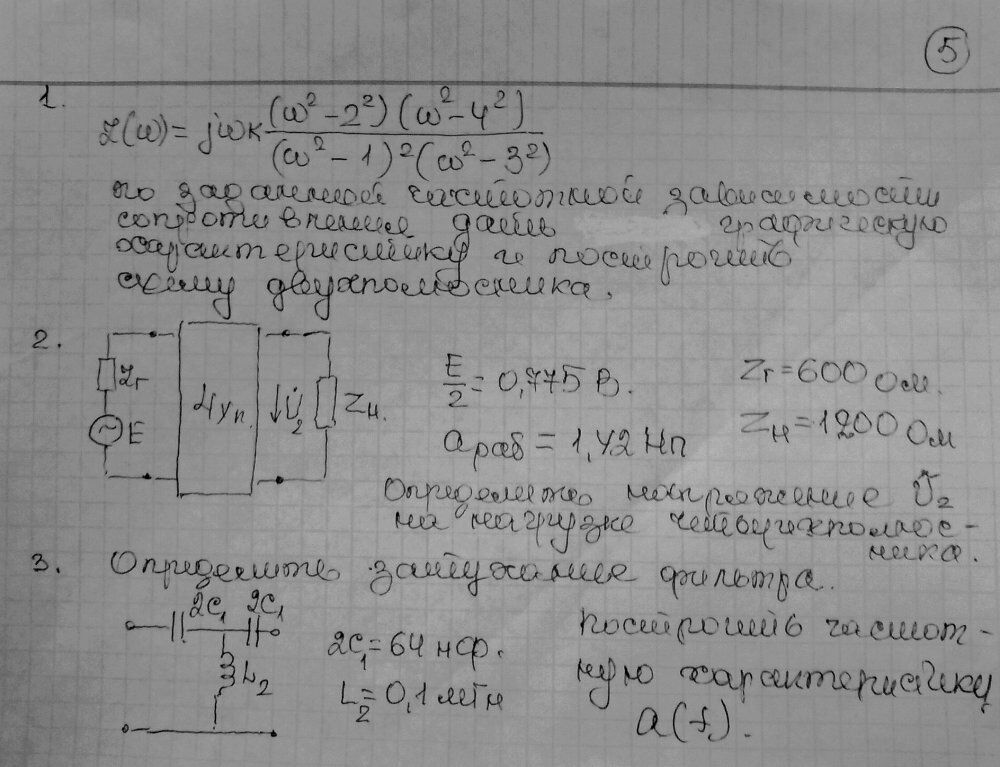 5
1.
Z(ω) = jωк (ω² - 2²)(ω² - 4²) / (ω² - 1)²(ω² - 3²)
по заданной частотной зависимости
сопротивления дать графическую
характеристику и построить
схему двухполюсника.
2.
Zг
E
4х п.
U̇₂
Zн.
E/2 = 0,775 В.
Zг = 600 Ом.
aраб = 1,42 Нп
Zн = 1200 Ом
Определить напряжение U₂
на нагрузке четырехполюс-
ника.
3. Определить затухание фильтра.
2C₁ 2C₁
L₂
2C₁ = 64 нф.
L₂ = 0,1 мГн
построить частот-
ную характеристику
a(f).